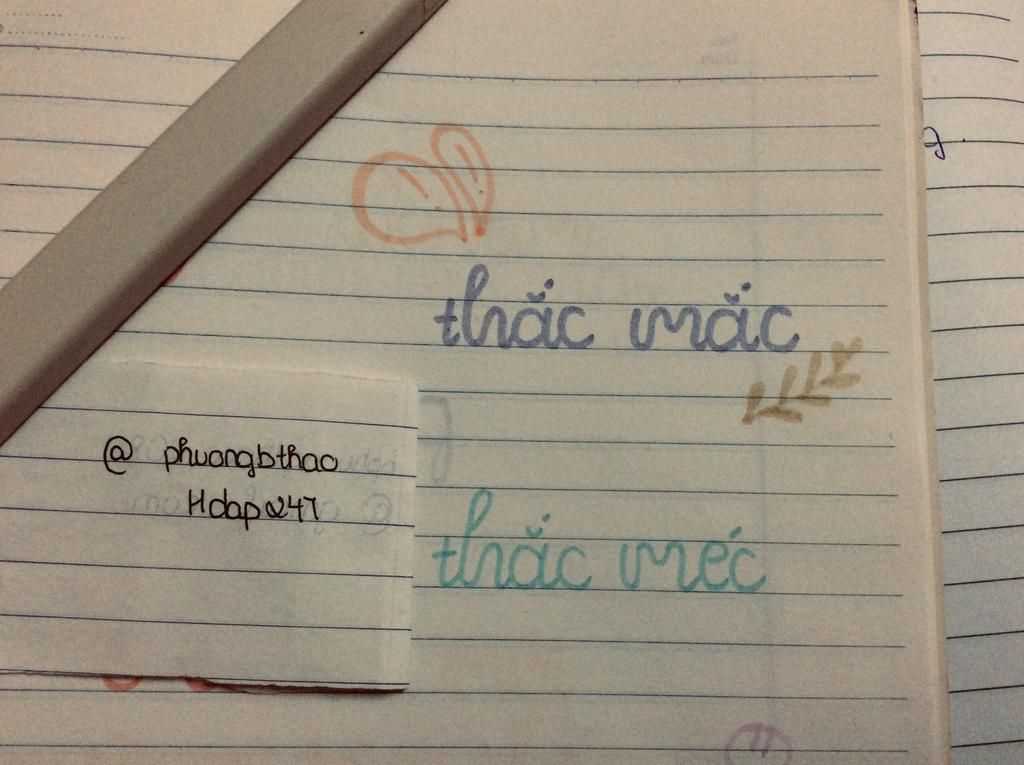 thắc mắc
@ phuongbthao
Hdap247
thắc méc